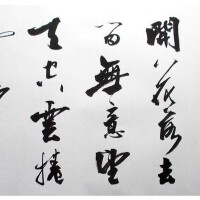 開花落去
留無意望
天空雲捲